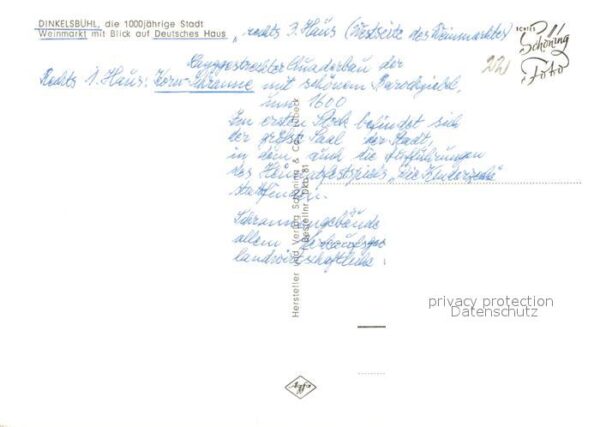 DINKELSBÜHL, die 1000jährige Stadt
Weinmarkt mit Blick auf Deutsches Haus
rechts 3. Haus (Westseite des Weinmarktes)
ECHTES
Schöning
Foto
221
Langgestreckter Quaderbau der
Rechts 1. Haus: Korn-Schranne mit schönem Barockgiebel,
um 1600
Im ersten Stock befindet sich
der größte Saal der Stadt,
in dem auch die Aufführungen
des Heimatfestspieles „Die Kinderzeche"
stattfinden.
Schrannengebäude
allem
landwirtschaftliche
Hersteller und Verlag Schöning & Co., Lübeck
Bestellnr. Dkb. 81
privacy protection
Datenschutz
Agfa